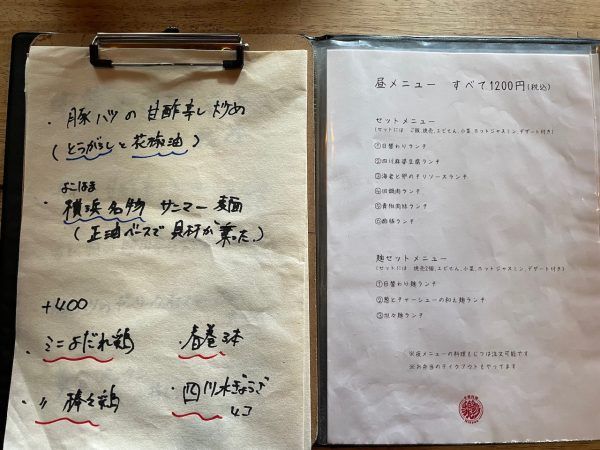 ・豚ハツの甘酢辛し炒め
(とうがらしと花椒油)
よこはま
・横浜名物 サンマー麺
(正油ベースで具材が乗った。)
+400
・ミニよだれ鶏
・春巻3本
・〃 棒々鶏
・四川水ぎょうざ
4コ
昼メニュー すべて1200円(税込)
セットメニュー
(セットには ご飯,焼売,エビせん,小菜,ホットジャスミン,デザート付き)
①日替わりランチ
②四川麻婆豆腐ランチ
③海老と卵のチリソースランチ
④回鍋肉ランチ
⑤青椒肉絲ランチ
⑥酢豚ランチ
麺セットメニュー
(セットには 焼売2個,エビせん,小菜,ホットジャスミン,デザート付き)
①日替わり麺ランチ
②葱とチャーシューの和え麺ランチ
③坦々麺ランチ
※夜メニューの料理もじつは注文可能です
※お弁当のテイクアウトもやってます